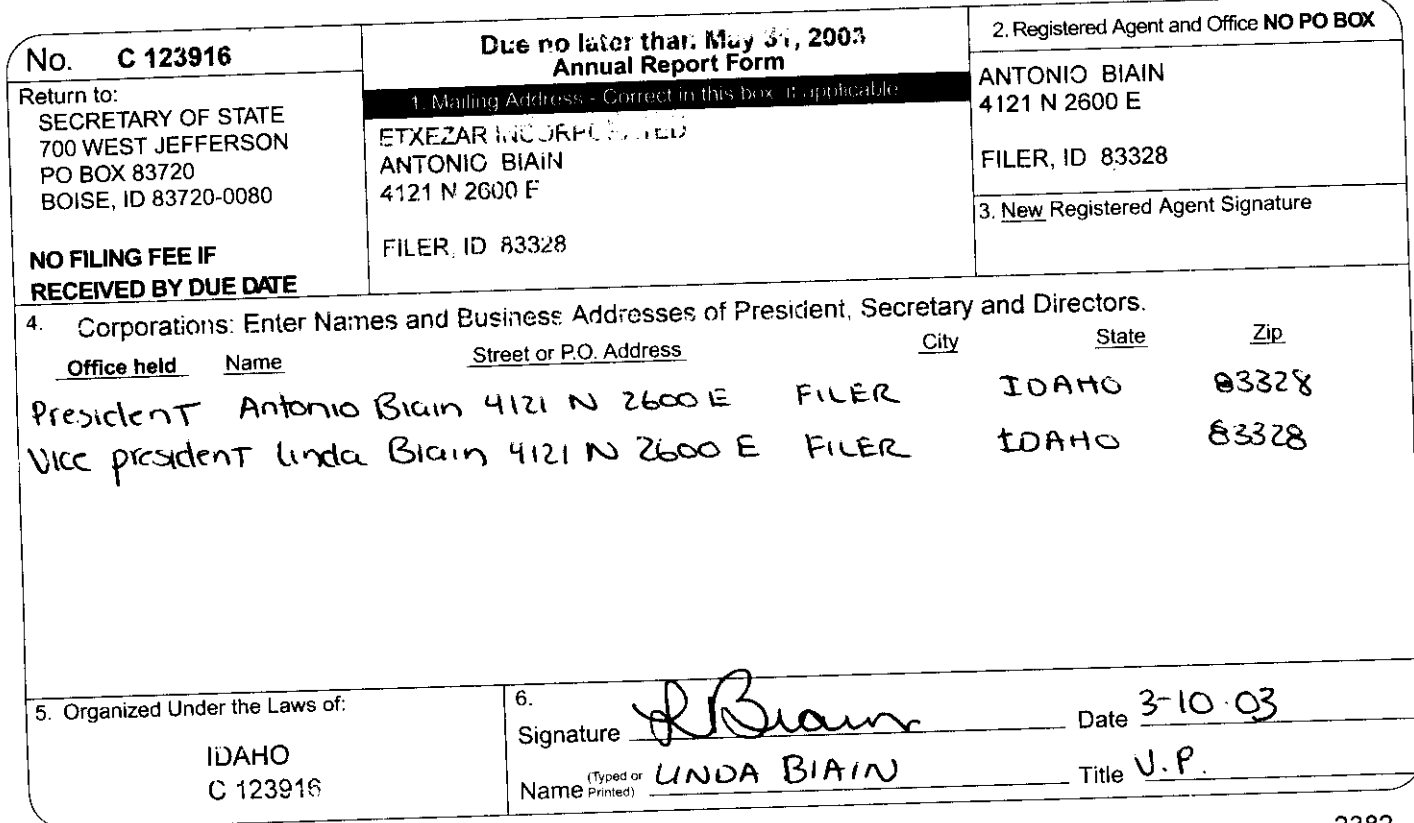 No. C 123916
Return to:
SECRETARY OF STATE
700 WEST JEFFERSON
PO BOX 83720
BOISE, ID 83720-0080
NO FILING FEE IF
RECEIVED BY DUE DATE
Due no later than May 31, 2003
Annual Report Form
1. Mailing Address - Correct in this box, if applicable
ETXEZAR INCORPORATED
ANTONIO BIAIN
4121 N 2600 E
FILER, ID 83328
2. Registered Agent and Office NO PO BOX
ANTONIO BIAIN
4121 N 2600 E
FILER, ID 83328
3. New Registered Agent Signature
4. Corporations: Enter Names and Business Addresses of President, Secretary and Directors.
Office held Name Street or P.O. Address City State Zip
President Antonio Biain 4121 N 2600 E FILER IDAHO 83328
Vice president Linda Biain 4121 N 2600 E FILER IDAHO 83328
5. Organized Under the Laws of:
IDAHO
C 123916
6.
Signature L Biain Date 3-10-03
Name (Typed or Printed) LINDA BIAIN Title V.P.